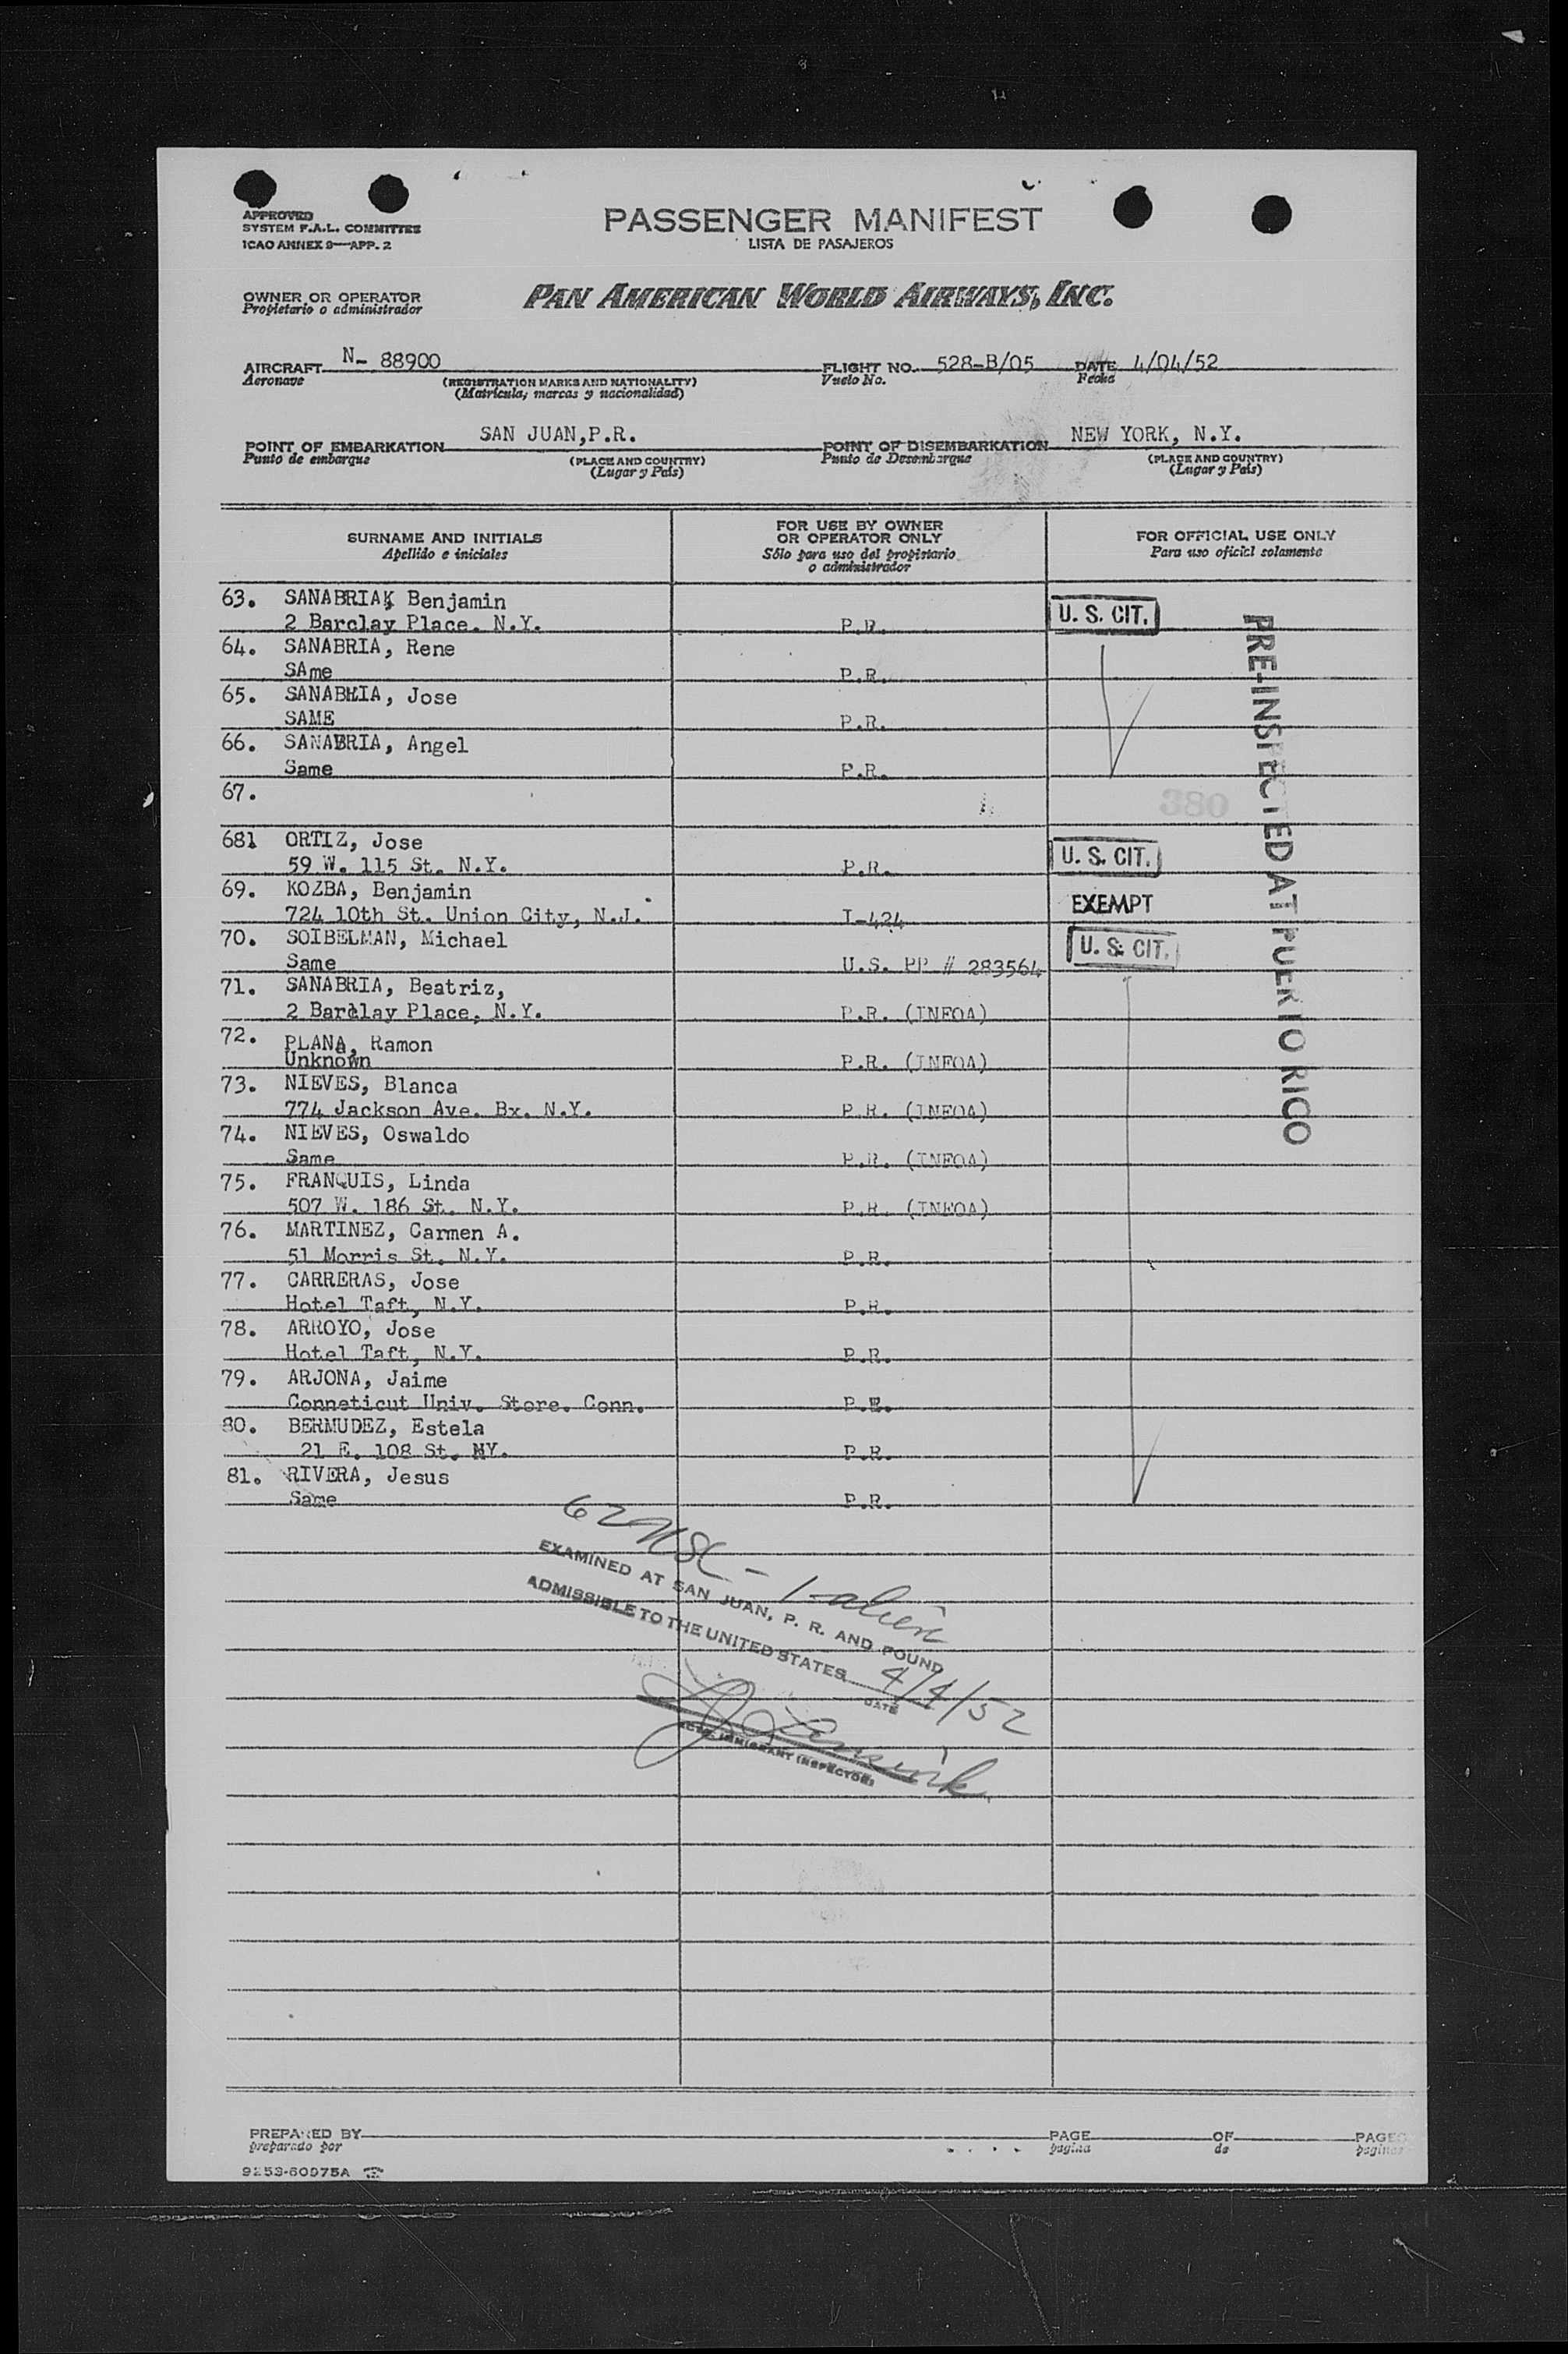 APPROVED
SYSTEM F.A.L. COMMITTEE
ICAO ANNEX 9—APP. 2
PASSENGER MANIFEST
LISTA DE PASAJEROS
OWNER OR OPERATOR
Propietario o administrador
PAN AMERICAN WORLD AIRWAYS, INC.
AIRCRAFT N- 88900
Aeronave
(REGISTRATION MARKS AND NATIONALITY)
(Matrícula, marcas y nacionalidad)
FLIGHT NO. 528-B/05 DATE 4/04/52
Vuelo No. Fecha
POINT OF EMBARKATION SAN JUAN,P.R.
Punto de embarque
(PLACE AND COUNTRY)
(Lugar y País)
POINT OF DISEMBARKATION NEW YORK, N.Y.
Punto de Desembarque
(PLACE AND COUNTRY)
(Lugar y País)
SURNAME AND INITIALS
Apellido e iniciales
FOR USE BY OWNER
OR OPERATOR ONLY
Sólo para uso del propietario
o administrador
FOR OFFICIAL USE ONLY
Para uso oficial solamente
63. SANABRIA, Benjamin
2 Barclay Place. N.Y. P.R. U. S. CIT.
64. SANABRIA, Rene
SAme P.R.
65. SANABRIA, Jose
SAME P.R.
66. SANABRIA, Angel
Same P.R.
67.
380
681 ORTIZ, Jose
59 W. 115 St. N.Y. P.R. U. S. CIT.
69. KOZBA, Benjamin
724 10th St. Union City, N.J. I-424 EXEMPT
70. SOIBELMAN, Michael
Same U.S. PP # 283564 U. S. CIT.
71. SANABRIA, Beatriz,
2 Barclay Place, N.Y. P.R. (INFOA)
72. PLANA, Ramon
Unknown P.R. (INFOA)
73. NIEVES, Blanca
774 Jackson Ave. Bx. N.Y. P.R. (INFOA)
74. NIEVES, Oswaldo
Same P.R. (INFOA)
75. FRANQUIS, Linda
507 W. 186 St. N.Y. P.R. (INFOA)
76. MARTINEZ, Carmen A.
51 Morris St. N.Y. P.R.
77. CARRERAS, Jose
Hotel Taft, N.Y. P.R.
78. ARROYO, Jose
Hotel Taft, N.Y. P.R.
79. ARJONA, Jaime
Conneticut Univ. Store. Conn. P.R.
80. BERMUDEZ, Estela
21 E. 108 St. NY. P.R.
81. RIVERA, Jesus
Same P.R.
PRE-INSPECTED AT PUERTO RICO
62 USC - 1-alien
EXAMINED AT SAN JUAN, P. R. AND FOUND
ADMISSIBLE TO THE UNITED STATES 4/4/52
DATE
IMMIGRANT INSPECTOR
PREPARED BY
preparado por
PAGE OF PAGES
página de páginas
9253-60975A